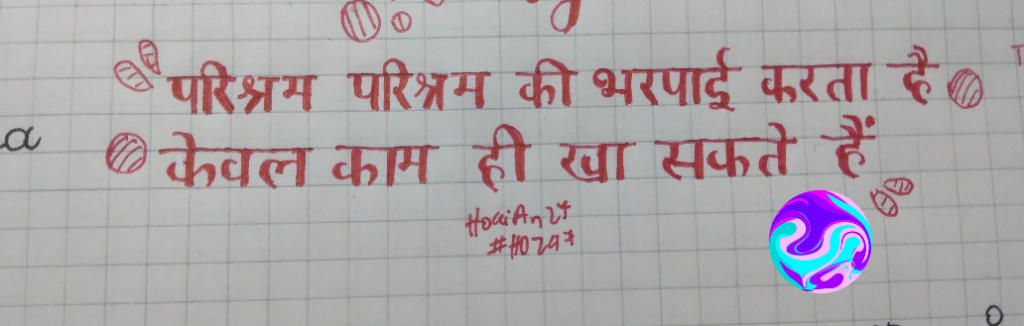 परिश्रम परिश्रम की भरपाई करता है
a केवल काम ही खा सकते हैं
HoaiAn24